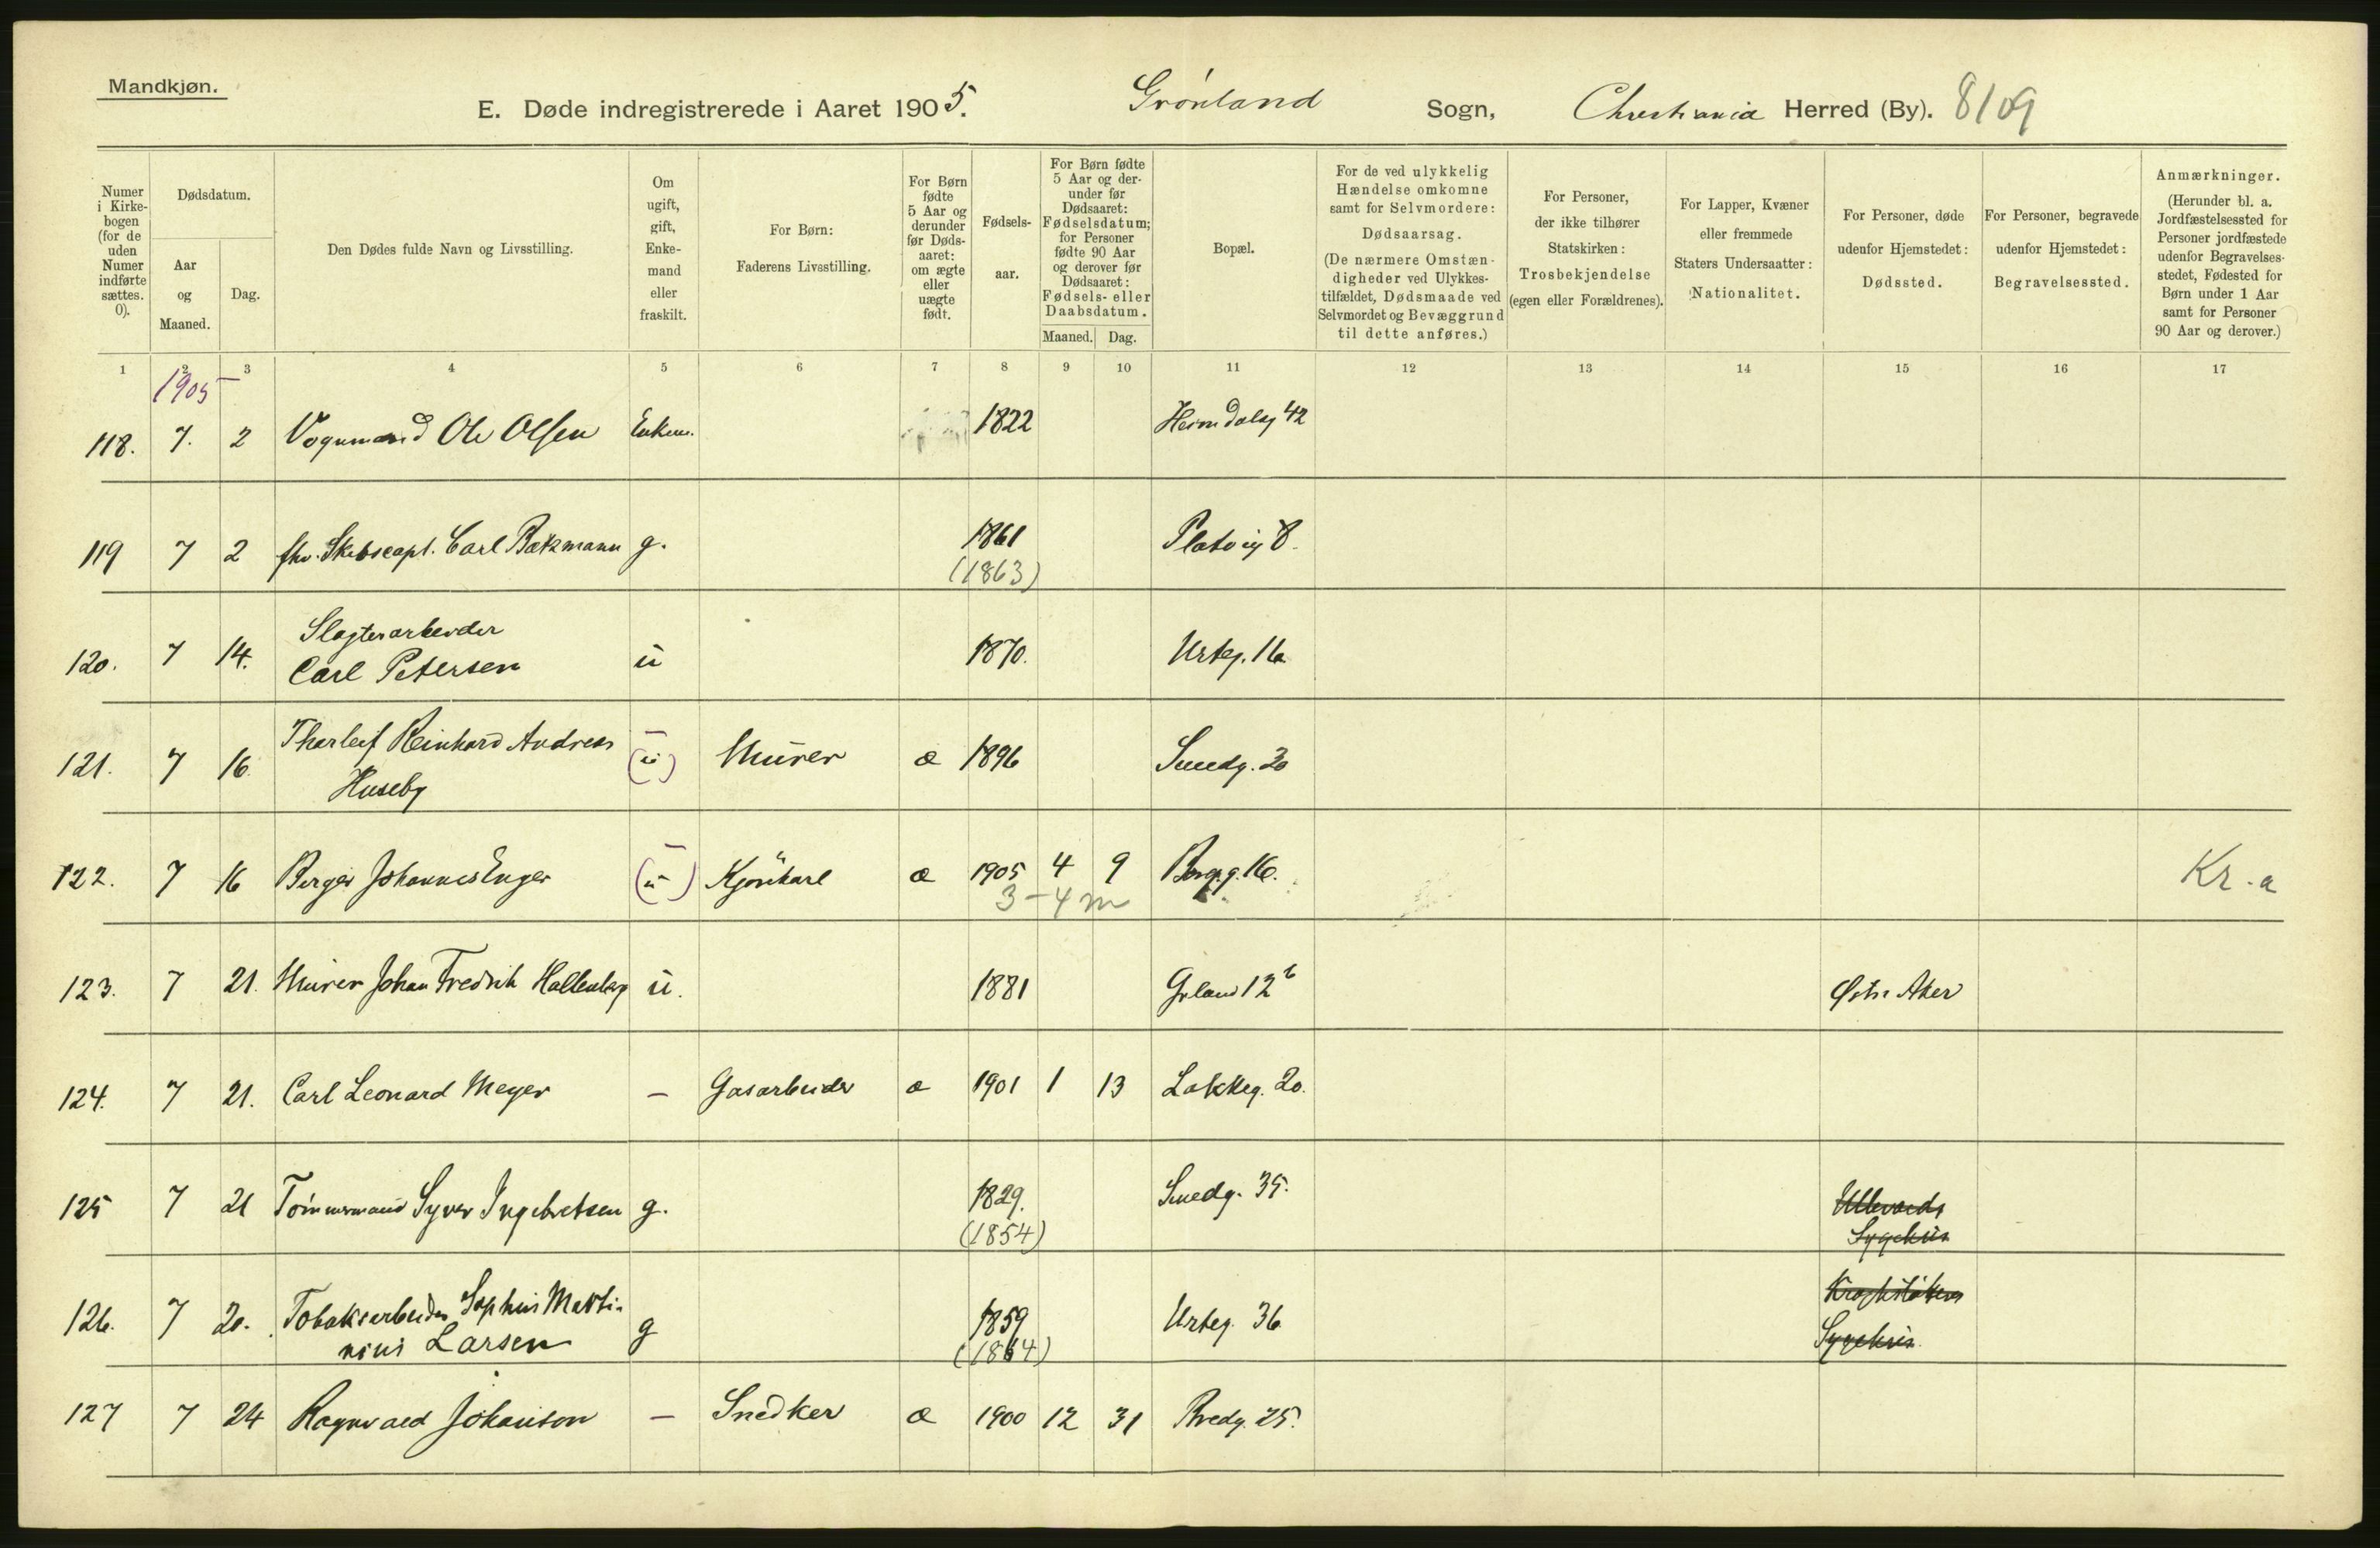 Mandkjøn.
E. Døde indregistrerede i Aaret 1905. Grønland Sogn, Christiania Herred (By). 8109
Numer i Kirkebogen (for de uden Numer indførte sættes. 0).
Dødsdatum.
Aar og Maaned.
Dag.
Den Dødes fulde Navn og Livsstilling.
Om ugift, gift, Enkemand eller fraskilt.
For Børn: Faderens Livsstilling.
For Børn fødte 5 Aar og derunder før Dødsaaret: om ægte eller uægte født.
Fødselsaar.
For Børn fødte 5 Aar og derunder før Dødsaaret: Fødselsdatum; for Personer fødte 90 Aar og derover før Dødsaaret: Fødsels- eller Daabsdatum.
Maaned. Dag.
Bopæl.
For de ved ulykkelig Hændelse omkomne samt for Selvmordere: Dødsaarsag. (De nærmere Omstændigheder ved Ulykkestilfældet, Dødsmaade ved Selvmordet og Bevæggrund til dette anføres.)
For Personer, der ikke tilhører Statskirken: Trosbekjendelse (egen eller Forældrenes).
For Lapper, Kvæner eller fremmede Staters Undersaatter: Nationalitet.
For Personer, døde udenfor Hjemstedet: Dødssted.
For Personer, begravede udenfor Hjemstedet: Begravelsessted.
Anmærkninger. (Herunder bl. a. Jordfæstelsessted for Personer jordfæstede udenfor Begravelsesstedet, Fødested for Børn under 1 Aar samt for Personer 90 Aar og derover.)
1 2 3 4 5 6 7 8 9 10 11 12 13 14 15 16 17
1905
118. 7. 2 Vognmand Ole Olsen Enkem. 1822 Heimdalsg 42
119 7 2 fhv. Skibscapt. Carl Bækmann g. 1861 Platoug 8.
(1863)
120. 7 14. Slagterarbeider
Carl Petersen ū 1870. Urteg. 16
121. 7 16 Thorleif Reinhard Andreas
Huseby — (ū) Murer æ 1896 Smedg. 20
122. 7 16 Birger Johannes Enger — (ū) Kjørekarl æ 1905 4 9 Borgg. 16.
3-4 m Kr.a
123. 7 21. Murer Johan Fredrik Hallenberg ū. 1881 Grland 12 b Østre Aker
124. 7 21. Carl Leonard Meyer — Gasarbeider æ 1901 1 13 Lakkeg. 20.
125 7 21 Tømmermand Syver Ingebretsen g. 1829. Smedg. 35. Ullevaals
(1854) Sygehus
126. 7 20. Tobaksarbeider Sophus Marti-
nius Larsen g 1859 Urteg. 36 Krohgstøttens
(1864) Sygehus
127 7 24 Ragnvald Johanson — Snedker æ 1900 12 31 Bredg. 25.